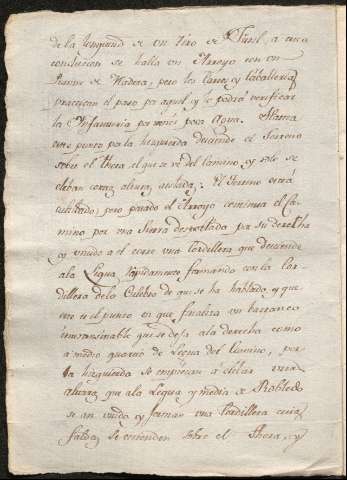 de la longitud de un tiro de Fusil, a cuia
conclusion se halla un Arroyo con un
Puente de Madera, pero los Carros y Caballeria
practican el paso por aquel, y le podrá verificar
la Infanteria por tener poca Agua. Hasta
este punto pa la Izquierda desciende el Terreno
sobre el Thera, el que se vé del Camino, y solo se
elevan cortas alturas aisladas. El Terreno está
cultibado, pero pasado el Arroyo continua el Ca-
mino por una Sierra por su derecha
y unido a el corre una Cordillera que desciende
ala Legua rápidamente formando con la Cor-
dillera dela Culebra de que se ha hablado, y que
este es el punto en que finaliza un barranco
intransitable que se dexa ala derecha como
a medio quarto de Legua del Camino, por
la Izquierda se empiezan a elebar unas
alturas que ala Legua y media de Robledo
se an unido y forman una Cordillera cuias
faldas se extienden sobre el Thera, y